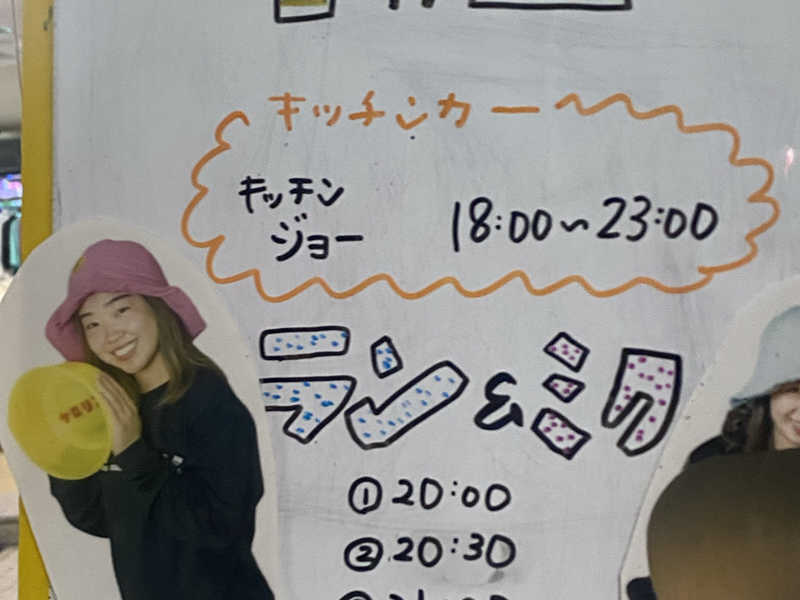 キッチンカー
キッチン
ジョー
18:00~23:00
ラン&ミリ
①20:00
②20:30
ケロリン